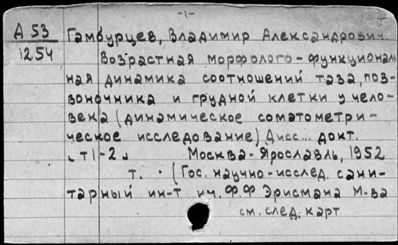 -1-
А 53 Гамбурцев, Владимир Александрович.
1254 Возрастная морфолого-функциональ
ная динамика соотношений таза, поз-
воночника и грудной клетки у чело-
века (динамическое соматометри-
ческое исследование) Дисс... докт.
т 1-2 Москва-Ярославль, 1952
т. (Гос. научно-исслед. сани-
тарный ин-т им. Ф.Ф Эрисмана М-ва
см. след. карт